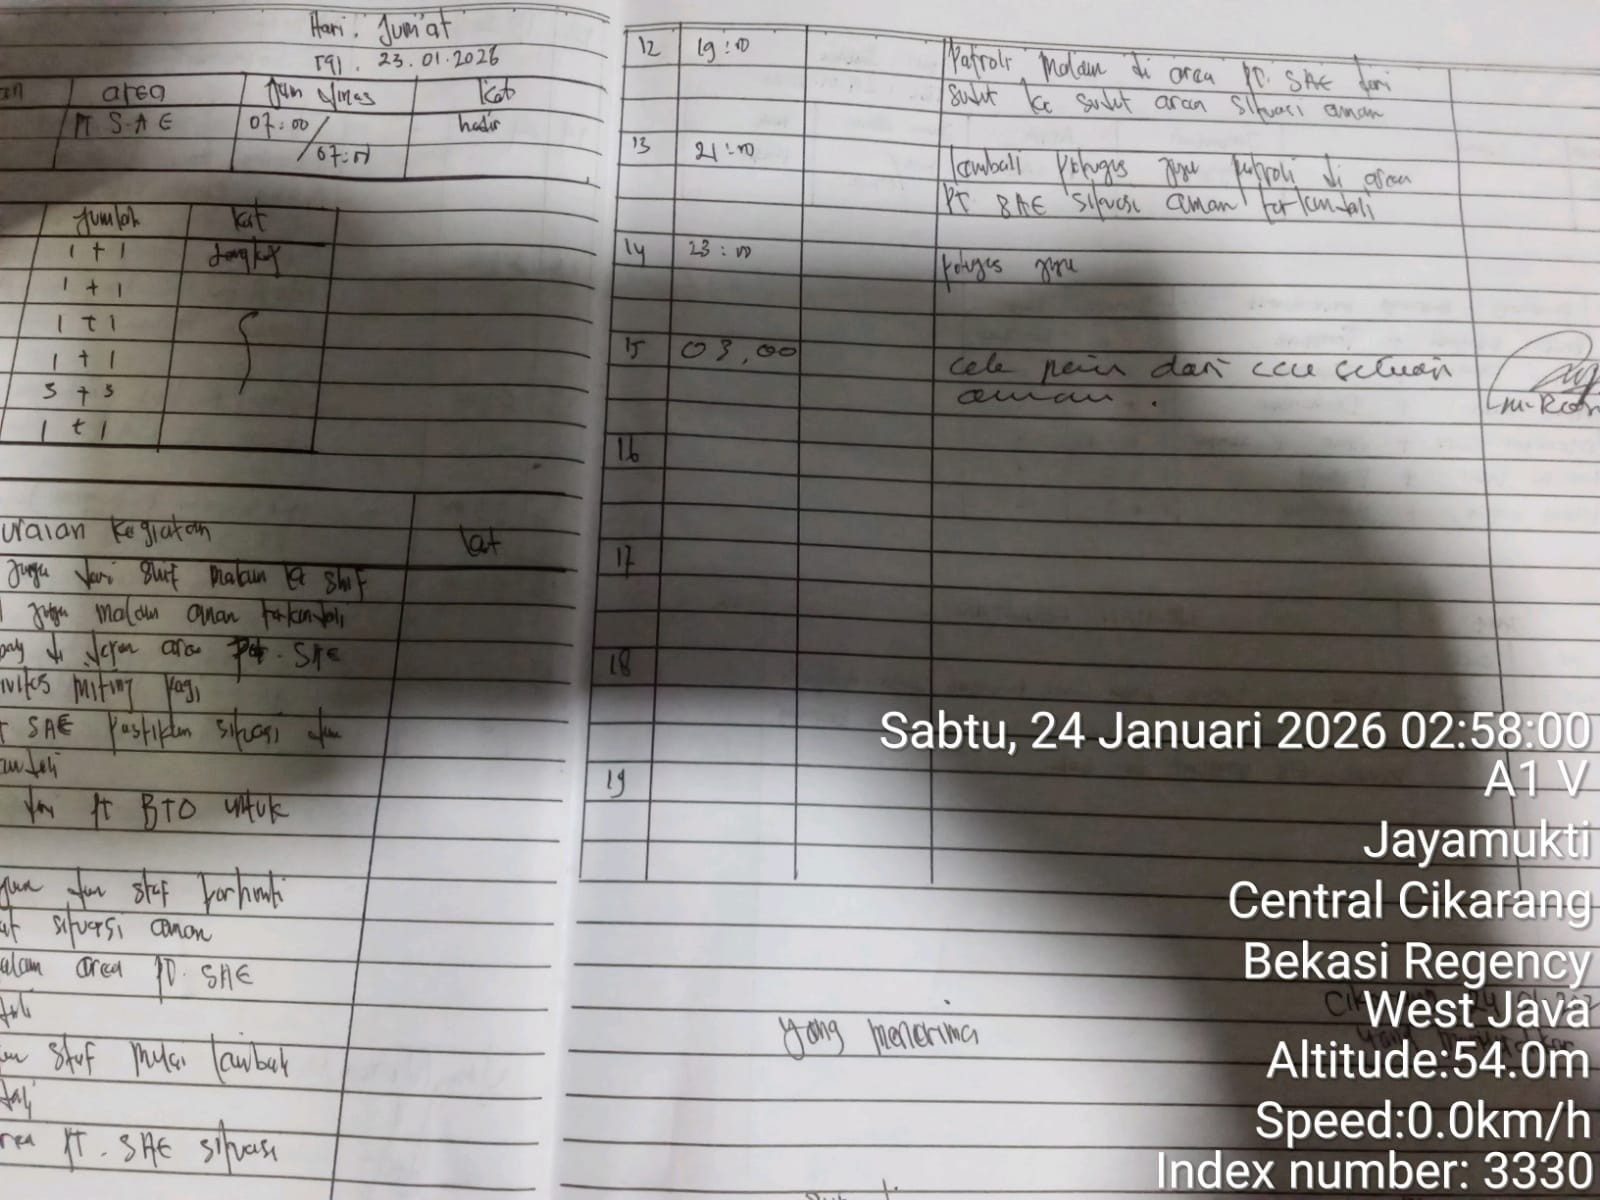 Hari. Jum'at
Tgl. 23.01.2026
area
Jam Dinas
Ket
PT SAE
07:00/
07:00
hadir
Jumlah
Ket
1 + 1
Lengkap
1 + 1
1 + 1
1 + 1
3 + 3
1 + 1
uraian kegiatan
Ket
Jaga dari Shif malam ke Shif
Jaga malam aman terkendali
di depan area PT. SAE
miting pagi
SAE Pastikan situasi dan
dari PT BTO untuk
dan staf
situasi aman
area PT. SAE
staf mulai kembali
PT. SAE situasi
12
19:00
Patroli malam di area PT. SAE dari
sudut ke sudut area situasi aman
13
21:00
kembali petugas jaga patroli di area
PT SAE situasi aman terkendali
14
23:00
petugas jaga
15
03,00
cek poin dari
aman.
16
17
18
19
yang menerima
Sabtu, 24 Januari 2026 02:58:00
A1 V
Jayamukti
Central Cikarang
Bekasi Regency
West Java
Altitude:54.0m
Speed:0.0km/h
Index number: 3330